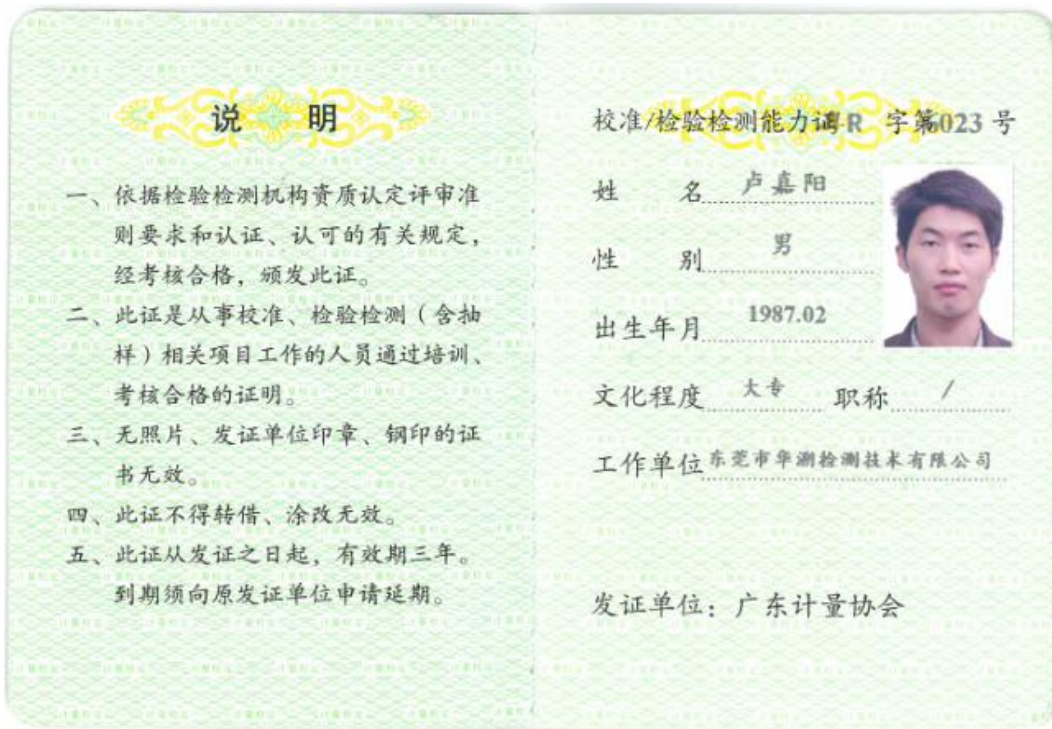 说 明
一、依据检验检测机构资质认定评审准
则要求和认证、认可的有关规定,
经考核合格，颁发此证。
二、此证是从事校准、检验检测（含抽
样）相关项目工作的人员通过培训、
考核合格的证明。
三、无照片、发证单位印章、钢印的证
书无效。
四、此证不得转借、涂改无效。
五、此证从发证之日起，有效期三年。
到期须向原发证单位申请延期。
校准/检验检测能力证 R 字第 023 号
姓 名 卢嘉阳
性 别 男
出生年月 1987.02
文化程度 大专 职称 /
工作单位 东莞市华溯检测技术有限公司
发证单位：广东计量协会